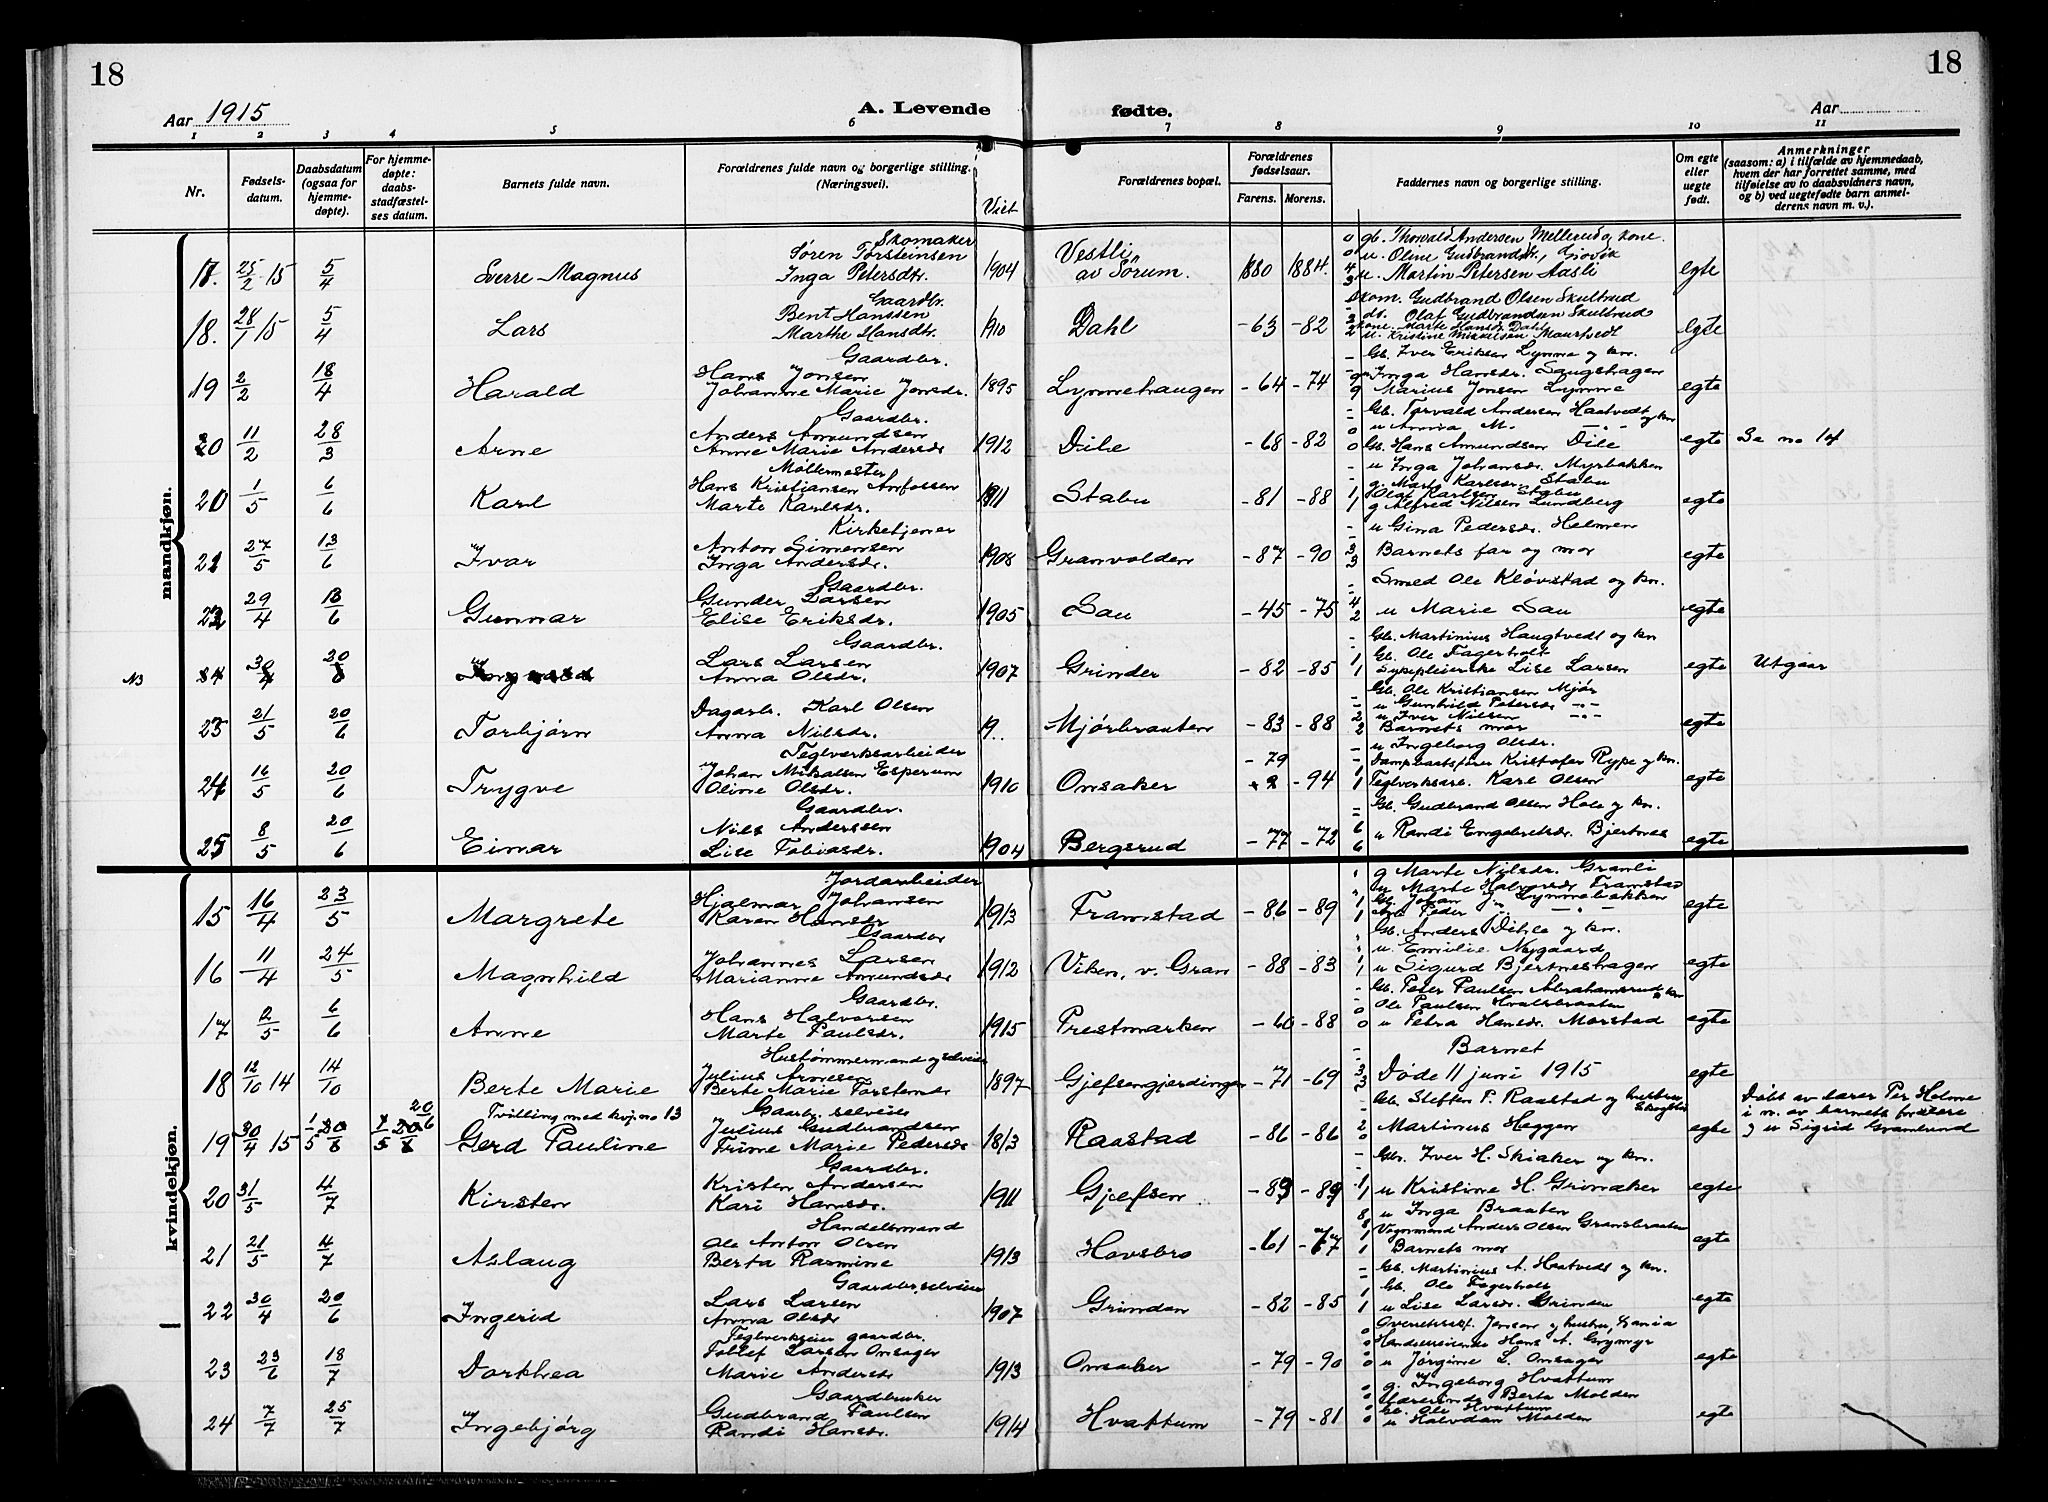 18
18
Aar 1915
A. Levende
fødte.
Aar
1 2 3 4 5 6 7 8 9 10 11
Nr.
Fødsels-
datum.
Daabsdatum
(ogsaa for
hjemme-
døpte).
For hjemme-
døpte:
daabs-
stadfæstel-
ses datum.
Barnets fulde navn.
Forældrenes fulde navn og borgerlige stilling.
(Næringsvei).
Viet
Forældrenes bopæl.
Forældrenes
fødselsaar.
Farens. Morens.
Faddernes navn og borgerlige stilling.
Om egte
eller
uegte
født.
Anmerkninger
(saasom: a) i tilfælde av hjemmedaab,
hvem der har forrettet samme, med
tilføielse av to daabsvidners navn,
og b) ved uegtefødte barn anmel-
derens navn m. v.).
mandkjøn.
Skomaker
17. 25/2 15 5/4 Sverre Magnus Søren Torsteinsen
Inga Petersdtr. 1904 Vestli
av Sørum. 1880 1884. gb. Thorvald Andersen Mellerud og kone.
u. Oline Gudbrandsdtr., Gjøvik
u. Martin Petersen Aasli egte
Gaardbr.
18. 28/1 15 5/4 Lars Bent Hanssen
Marthe Hansdtr. 1910 Dahl -63 -82 Skom. Gudbrand Olsen Skultrud
ds. Olaf Gudbrandsen Skultrud
kone. Marte Hansdr. Dahl
u. Kristine Mikkelsen egte
Gaardbr.
19 2/2 18/4 Harald Hans Jonsen
Johanne Marie Jonsdr. 1895 Lynnehaugen -64 -74 Gb. Iver Eriksen Lynne og kn.
Inga Hansdr. Saugshagen
Marius Jonsen Lynne egte
Gaardbr.
20 11/2 28/3 Arne Anders Amundsen
Anne Marie Andersdr 1912 Dihle -68 -82 Gb. Torvald Andersen Haatvedt og kn
u Anna M. -"-
Gb. Hans Amundsen Dile egte Se no 14
Møllemester
20 1/5 6/6 Karl Hans Kristiansen
Marte Karlsdr. 1911 Stabu -81 -88 u Inga Johansdr. Myrbakken
g. Marte Karlsdr. Stabu
Olaf Karlsen Stabu
g Alfred Nilsen Lundberg egte
Kirketjener
21 27/5 13/6 Ivar Anton Simensen
Inga Andersdr. 1908 Granvolden -87 -90 u Gina Pedersdr. Helmen
Barnets far og mor egte
Gaardbr.
22 29/4 13/6 Gunnar Gunder Larsen
Elise Eriksdr. 1905 Sau -45 -75 Smed Ole Kløvstad og kn.
u Marie Sau egte
Gaardbr.
30/4 20/6 Lars Larsen
Anna Olsdr. 1907 Grinder -82 -85 Gb. Martinius Haugtvedt og kn
Gb. Ole Fagerholt
Sykepleierske Lise Larsen egte Utgaar
23 21/5 20/6 Torbjørn Dagarb. Karl Olsen
Anna Nilsdr. 19.. Mjørbraaten -83 -88 Gb. Ole Kristiansen Mjør
u Gunhild Petersdr -"-
u Iver Nilsen -"-
Barnets mor egte
Teglverksarbeider
24 16/5 20/6 Trygve Johan Mikalsen Esperum
Oline Olsdr. 1910 Onsaker -79 -94 u Ingeborg Olsdr.
Dampbaatsfører Kristofer Rype og kn.
Teglverksarb. Karl Olsen egte
Gaardbr.
25 8/5 20/6 Einar Nils Anderssen
Lise Tobiasdr. 1904 Bergsrud -77 -72 Gb. Gudbrand Olsen Hole og kn.
u Randi Engebretsdr. Bjertnes egte
kvindekjøn.
Jordarbeider
15 16/4 23/5 Margrete Hjalmar Johansen
Karen Hansdr 1913 Framstad -86 -89 g Marte Nilsdr. Granli
u Marte Halvorsdr Framstad
Gb. Johan J. Lynnebakken
Arb Peder -"- egte
Gaardbr
16 11/4 24/5 Magnhild Johannes Larsen
Marianne Amundsdr 1912 Viken, v. Gran -88 -83 Gb. Anders Dihle og kn.
u. Emilie Nygaard
u Sigurd Bjertneshagen egte
Gaardbr.
17 2/5 6/6 Anne Hans Halvorsen
Marte Paulsdr. 1915 Prestmarken -60 -88 Gb. Peter Paulsen Abrahamsrud og kn
Ole Paulsen Hvalsbraaten
u Petra Hansdr. Morstad egte
Hustømmermand og selveier
18 12/10 14 14/10 Berte Marie Julius Arnesen
Berte Marie Torstensdr 1897 Gjefsengjerdingen -71 -69 Barnet
Døde 11 juni 1915 egte
Tvilling med kvj. no 13
Gaardbr. selveier
19 30/4 15 1/5 20/6 Gerd Pauline Julius Gudbrandsen
Trine Marie Pedersdr 1813 Raastad -86 -86 Gb. Steffen P. Raastad og hustru
Martinus Heggen egte Døbt av lærer Per Holme
i n. av barnets forældre
og u Sigrid
Gaardbr.
20 31/5 4/7 Kirsten Kristen Andersen
Kari Hansdr. 1911 Gjefsen -83 -89 Gbr. Iver H. Skiaker og kn.
u Kristine H. Grinaker egte
Handelsmand
21 21/5 4/7 Aslaug Ole Anton Olsen
Berta Rasmine 1913 Hovsbro -61 -77 u Inga Braaten
Vognmand Anders Olsen Gransbraaten
Barnets mor egte
Gaardbr, selveier
22 30/4 20/6 Ingerid Lars Larsen
Anna Olsdr 1907 Grindan -82 -85 Gb. Martinius A. Haatvedt og kn.
Gb. Ole Fagerholt
u Lise Larsdr. Grinden egte
Teglverkseier gaardbr.
23 23/6 18/7 Dorthea Tollef Larsen Onsager
Marie Andersdr 1913 Onsaker -79 -90 Overrettssf. Jensen og hustru, Hania
Handelsreisende Hans A. Grymyr
u Jørgine L. Onsager egte
Gaardbruker
24 7/7 25/7 Ingebjørg Gudbrand Paulsen
Randi Hansdr. 1914 Hvattum -79 -81 g. Ingeborg Hvattum
Lærerinde Berta Molden
Gb. Ole Hvattum
u Halvdan Molden egte